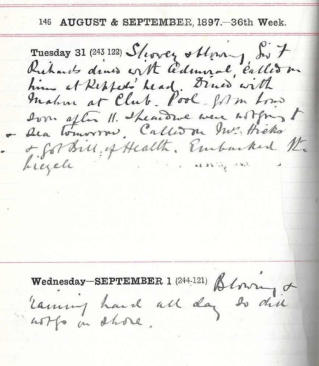 146 AUGUST & SEPTEMBER, 1897.—36th Week.
Tuesday 31 (243 122) Showery & blowing
Richards dined with Admiral, called on
him at Keppel's head. Dined with
at Club. Pool. Got on board
soon after 11. were not going to
sea tomorrow. Called on Mrs. Hicks
& got Bill of Health. Embarked
bicycle
Wednesday—SEPTEMBER 1 (244-121) Blowing &
raining hard all day so did
not go on shore.